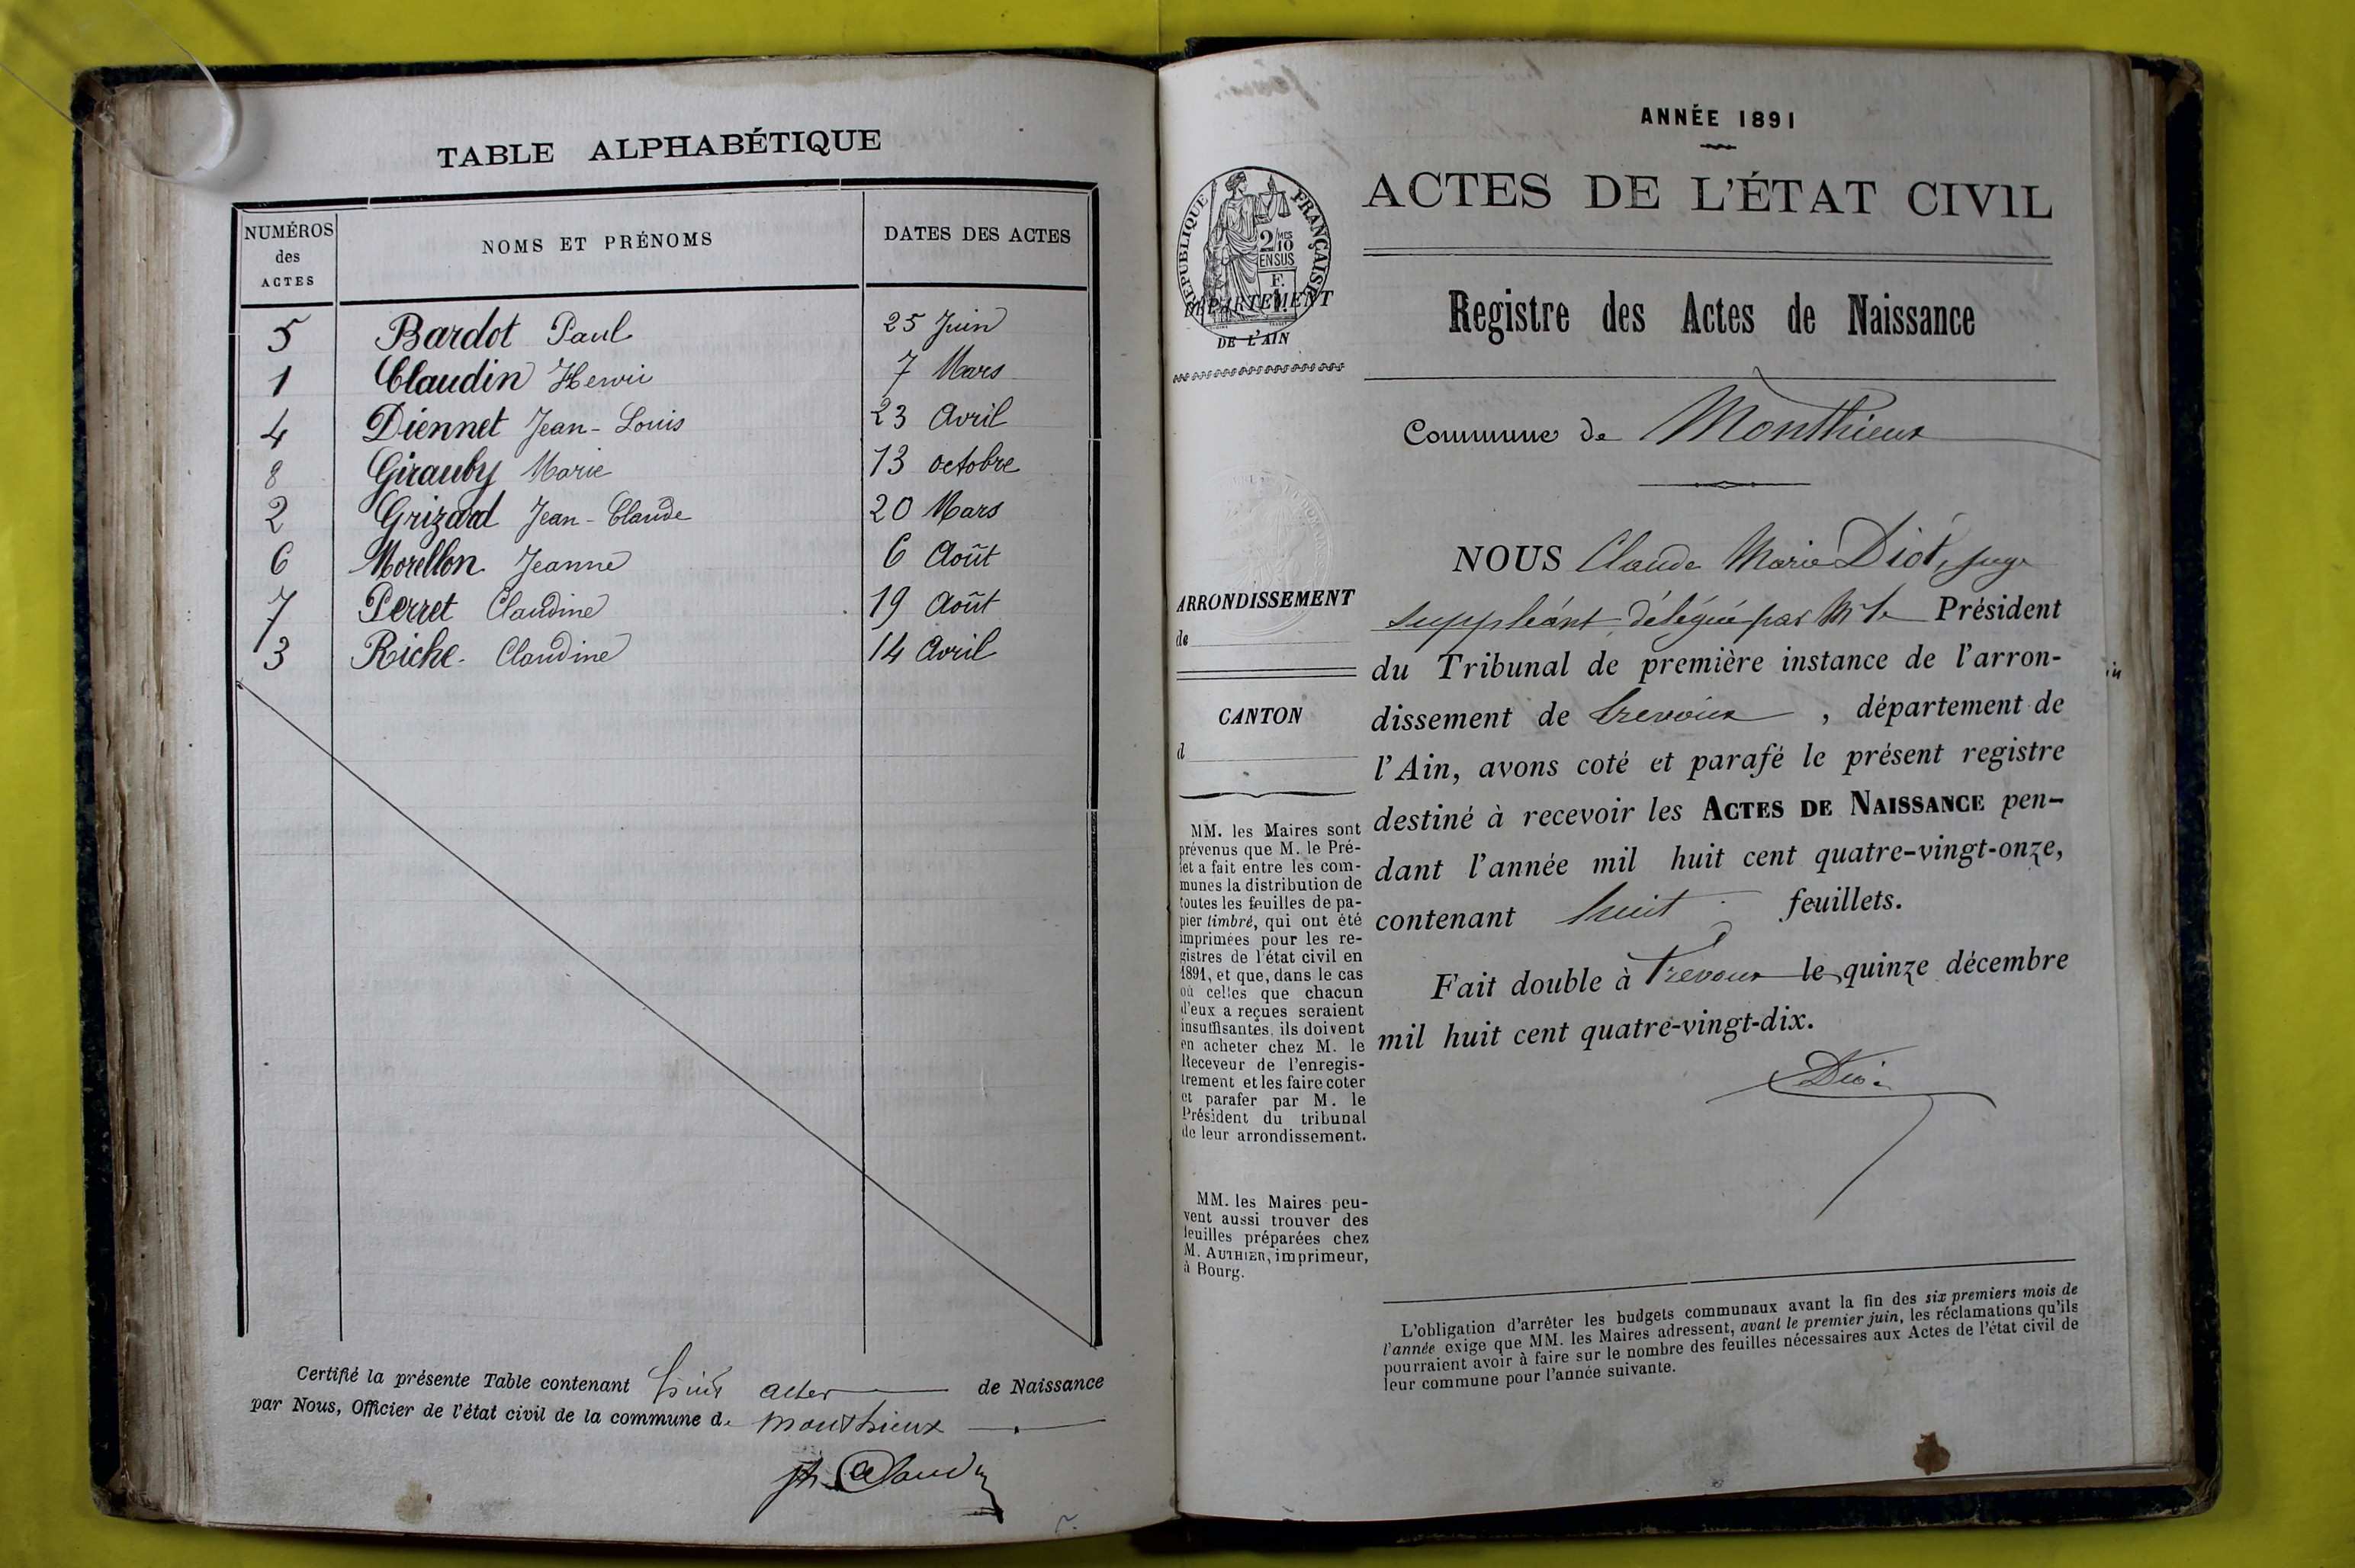 TABLE ALPHABÉTIQUE
NUMÉROS des ACTES
NOMS ET PRÉNOMS
DATES DES ACTES
5 Bardot Paul 25 Juin
1 Claudin Henri 7 Mars
4 Diennet Jean-Louis 23 Avril
8 Girauby Marie 13 octobre
2 Grizard Jean-Claude 20 Mars
6 Morellon Jeanne 6 Août
7 Perret Claudine 19 Août
3 Riche Claudine 14 Avril
Certifié la présente Table contenant huit actes de Naissance
par Nous, Officier de l'état civil de la commune de Monthieux
Claudin
ANNÉE 1891
ACTES DE L'ÉTAT CIVIL
RÉPUBLIQUE FRANÇAISE
2/10 MES
EN SUS
F.
DÉPARTEMENT
DE L'AIN
Registre des Actes de Naissance
Commune de Monthieux
NOUS Claude Marie Diot, juge
suppléant, délégué par Mr le Président
du Tribunal de première instance de l'arron-
dissement de Trevoux, département de
l'Ain, avons coté et parafé le présent registre
destiné à recevoir les ACTES DE NAISSANCE pen-
dant l'année mil huit cent quatre-vingt-onze,
contenant huit feuillets.
Fait double à Trevoux le quinze décembre
mil huit cent quatre-vingt-dix.
ARRONDISSEMENT
de
CANTON
d
MM. les Maires sont
prévenus que M. le Pré-
fet a fait entre les com-
munes la distribution de
toutes les feuilles de pa-
pier timbré, qui ont été
imprimées pour les re-
gistres de l'état civil en
1891, et que, dans le cas
où celles que chacun
d'eux a reçues seraient
insuffisantes, ils doivent
en acheter chez M. le
Receveur de l'enregis-
trement et les faire coter
et parafer par M. le
Président du tribunal
de leur arrondissement.
MM. les Maires peu-
vent aussi trouver des
feuilles préparées chez
M. AUTHIER, imprimeur,
à Bourg.
L'obligation d'arrêter les budgets communaux avant la fin des six premiers mois de
l'année exige que MM. les Maires adressent, avant le premier juin, les réclamations qu'ils
pourraient avoir à faire sur le nombre des feuilles nécessaires aux Actes de l'état civil de
leur commune pour l'année suivante.